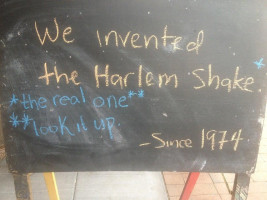 We invented
the Harlem Shake.*
*the real one**
**look it up.
-Since 1974.